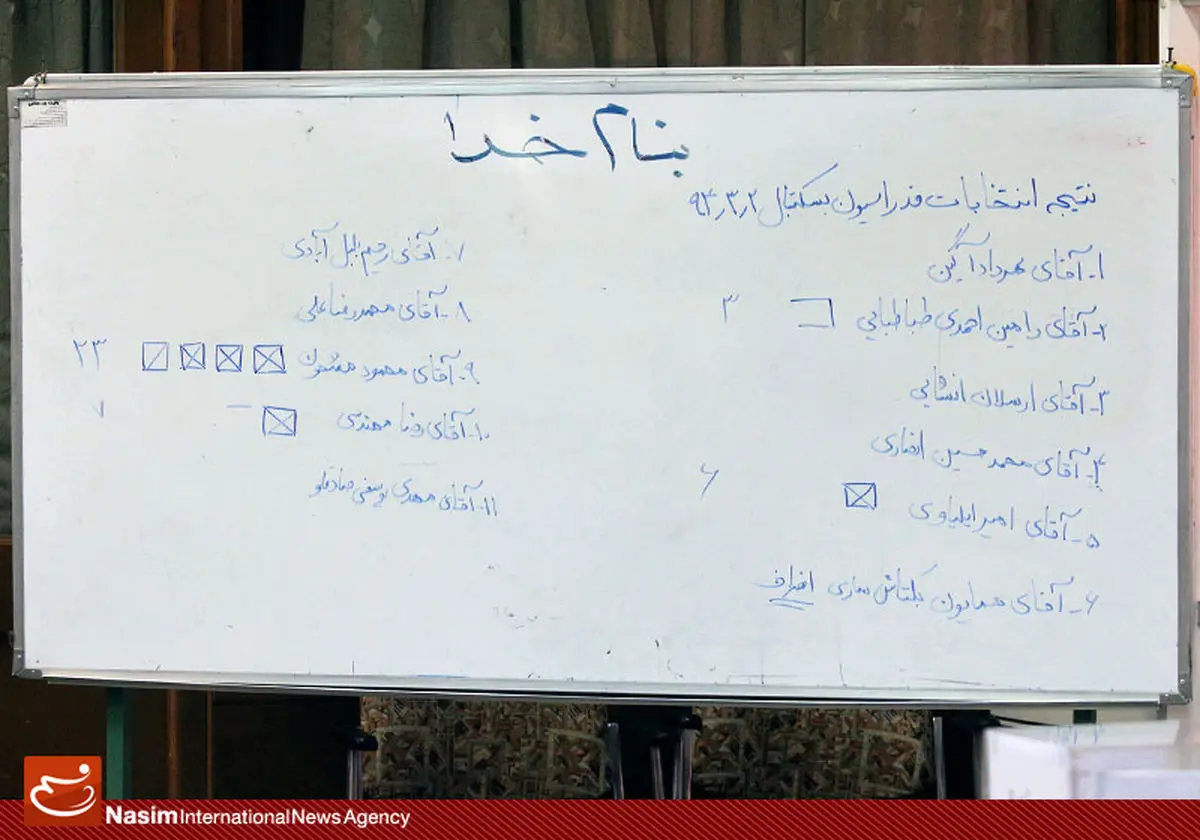 بنام خدا
نتیجه انتخابات فدراسیون بسکتبال ۹۴٫۳٫۲
۱- آقای مهرداد آگین
۲- آقای رامین احمدی طباطبایی ۳
۳- آقای ارسلان انشایی
۴- آقای محمد حسین انصاری
۵- آقای امیر ایلیاوی ۶
۶- آقای همایون بکتاش ساری انصراف
۷- آقای رحیم بلبل آبادی
۸- آقای محمدرضا علی
۹- آقای محمود مشحون ۲۳
۱۰- آقای رضا مهندسی ۷
۱۱- آقای مهدی یوسفی صادقلو
Nasim International News Agency